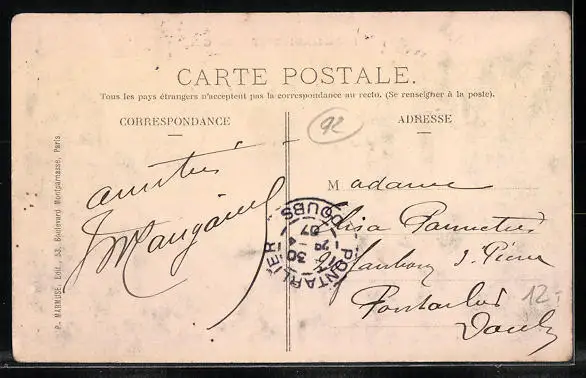 CARTE POSTALE.
Tous les pays étrangers n'acceptent pas la correspondance au recto. (Se renseigner à la poste).
CORRESPONDANCE
ADRESSE
92
P. MARMUSE, Edit., 53, Boulevard Montparnasse, Paris
amitiés
Madame
Elisa
Faubourg S. Pierre
Pontarlier
Doubs
PONTARLIER
DOUBS
30
07
12.-